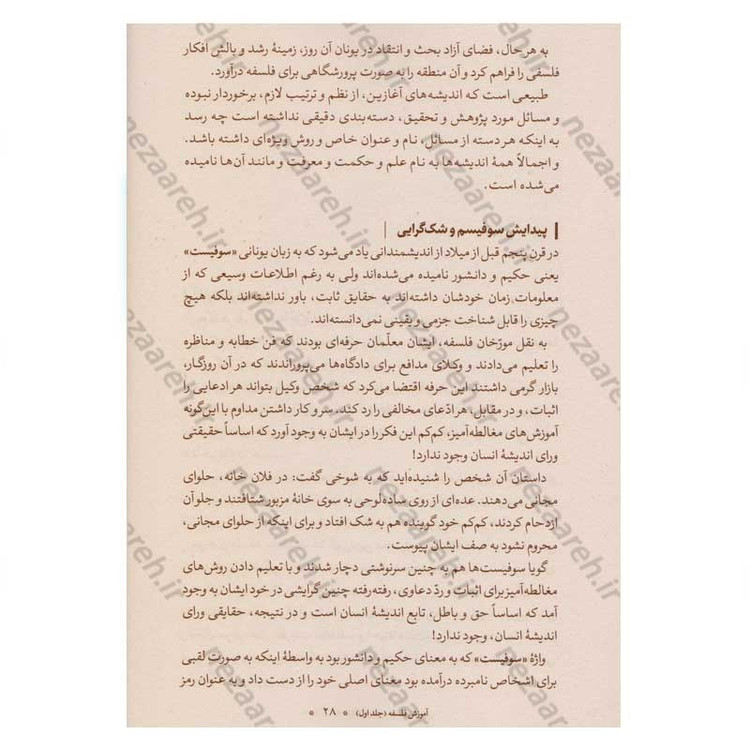 به هر حال، فضای آزاد بحث و انتقاد در یونان آن روز، زمینهٔ رشد و بالش افکار
فلسفی را فراهم کرد و آن منطقه را به صورت پرورشگاهی برای فلسفه درآورد.
طبیعی است که اندیشه‌های آغازین، از نظم و ترتیب لازم، برخوردار نبوده
و مسائل مورد پژوهش و تحقیق، دسته‌بندی دقیقی نداشته است چه رسد
به اینکه هر دسته از مسائل، نام و عنوان خاص و روش ویژه‌ای داشته باشد.
و اجمالاً همهٔ اندیشه‌ها به نام علم و حکمت و معرفت و مانند آن‌ها نامیده
می‌شده است.
پیدایش سوفیسم و شک‌گرایی
در قرن پنجم قبل از میلاد از اندیشمندانی یاد می‌شود که به زبان یونانی «سوفیست»
یعنی حکیم و دانشور نامیده می‌شده‌اند ولی به رغم اطلاعات وسیعی که از
معلومات زمان خودشان داشته‌اند به حقایق ثابت، باور نداشته‌اند بلکه هیچ
چیزی را قابل شناخت جزمی و یقینی نمی‌دانسته‌اند.
به نقل مورّخان فلسفه، ایشان معلّمان حرفه‌ای بودند که فن خطابه و مناظره
را تعلیم می‌دادند و وکلای مدافع برای دادگاه‌ها می‌پروراندند که در آن روزگار،
بازار گرمی داشتند این حرفه اقتضا می‌کرد که شخص وکیل بتواند هر ادعایی را
اثبات، و در مقابل، هر ادّعای مخالفی را رد کند. سر و کار داشتن مداوم با این‌گونه
آموزش‌های مغالطه‌آمیز، کم‌کم این فکر را در ایشان به وجود آورد که اساساً حقیقتی
ورای اندیشهٔ انسان وجود ندارد!
داستان آن شخص را شنیده‌اید که به شوخی گفت: در فلان خانه، حلوای
مجانی می‌دهند. عده‌ای از روی ساده‌لوحی به سوی خانهٔ مزبور شتافتند و جلو آن
ازدحام کردند، کم‌کم خود گوینده هم به شک افتاد و برای اینکه از حلوای مجانی،
محروم نشود به صف ایشان پیوست.
گویا سوفیست‌ها هم به چنین سرنوشتی دچار شدند و با تعلیم دادن روش‌های
مغالطه‌آمیز برای اثبات و ردّ دعاوی، رفته‌رفته چنین گرایشی در خود ایشان به وجود
آمد که اساساً حق و باطل، تابع اندیشهٔ انسان است و در نتیجه، حقایقی ورای
اندیشهٔ انسان، وجود ندارد!
واژهٔ «سوفیست» که به معنای حکیم و دانشور بود به واسطهٔ اینکه به صورت لقبی
برای اشخاص نامبرده درآمده بود معنای اصلی خود را از دست داد و به عنوان رمز
آموزش فلسفه (جلد اول) * ۲۸ *
nezaareh.ir